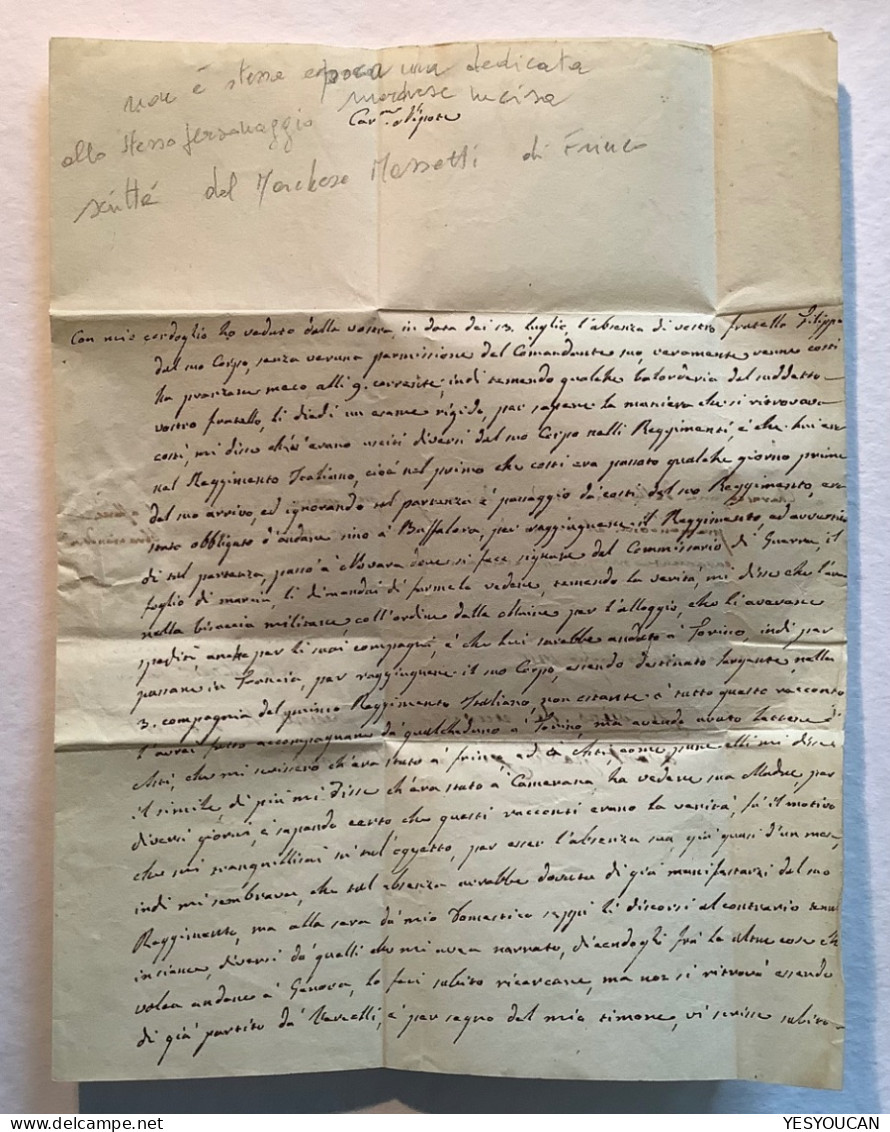 non è stessa epoca una dedicata
marchese Incisa
allo stesso personaggio
Car.mo Nipote
scritta dal Marchese Mazzetti di Frinco
Con mio cordoglio ho veduto dalla vostra, in data dei 13. luglio, l'absenza di vostro fratello Filippo
dal suo Corpo, senza veruna permissione del Comandante suo, veramente venne costì
ha pranzare meco alli 9. corrente; indi temendo qualche balordaria del suddetto
vostro fratello, li diedi un esame rigido, per sapere la maniera che si ritrovava
costì, mi disse ch'erano usciti diversi dal suo Corpo nelli Reggimenti, è che lui era
nel Reggimento Italiano, cioè nel primo che costì era passato qualche giorno prima
del suo arrivo, ed ignorando tal partenza è passaggio da costì, del suo Reggimento, era
stato obbligato d'andare sino à Buffalora, per raggiugnere il Reggimento, ed avvertito
di tal partenza, passò à Novara dove si fece signare dal Commissario di Guerra, il
foglio di marcia, li dimandai di farmela vedere, temendo la verità, mi disse che l'aveva
nella bisaccia militare, coll'ordine dalla per l'alloggio, che li avevano
spedita, anche per li suoi compagni, è che lui sarebbe andato à Torino, indi per
passare in Francia, per raggiugnere il suo Corpo, essendo destinato sargente, nella
3. compagnia del primo Reggimento Italiano, non ostante à tutto questo racconto
l'avrei fatto accompagnare da qualcheduno à Torino, ma avendo avuto lettere d'
Asti, che mi scrissero ch'era stato à Frinco ed à Asti, come pure elli mi disse
il simile, di più mi disse ch'era stato à Camerana, ha vedere sua Madre, per
diversi giorni, è sapendo certo che questi racconti erano la verità, fù il motivo
che mi tranquillizai in tal oggetto, per esser l'absenza sua già quasi d'un mese,
indi mi sembrava, che tal absenza avrebbe dovuto di già manifestarsi dal suo
Reggimento, ma alla sera da mio Domestico seppi li discorsi al contrario tenuti
insieme, diversi da quelli che mi aveva narrato, dicendogli frà le altre cose che
volea andare à Genova, lo feci subito ricercare, ma non si ritrovò essendo
di già partito da Vercelli, è per segno del mio timore, vi scrisse subito
YESYOUCAN